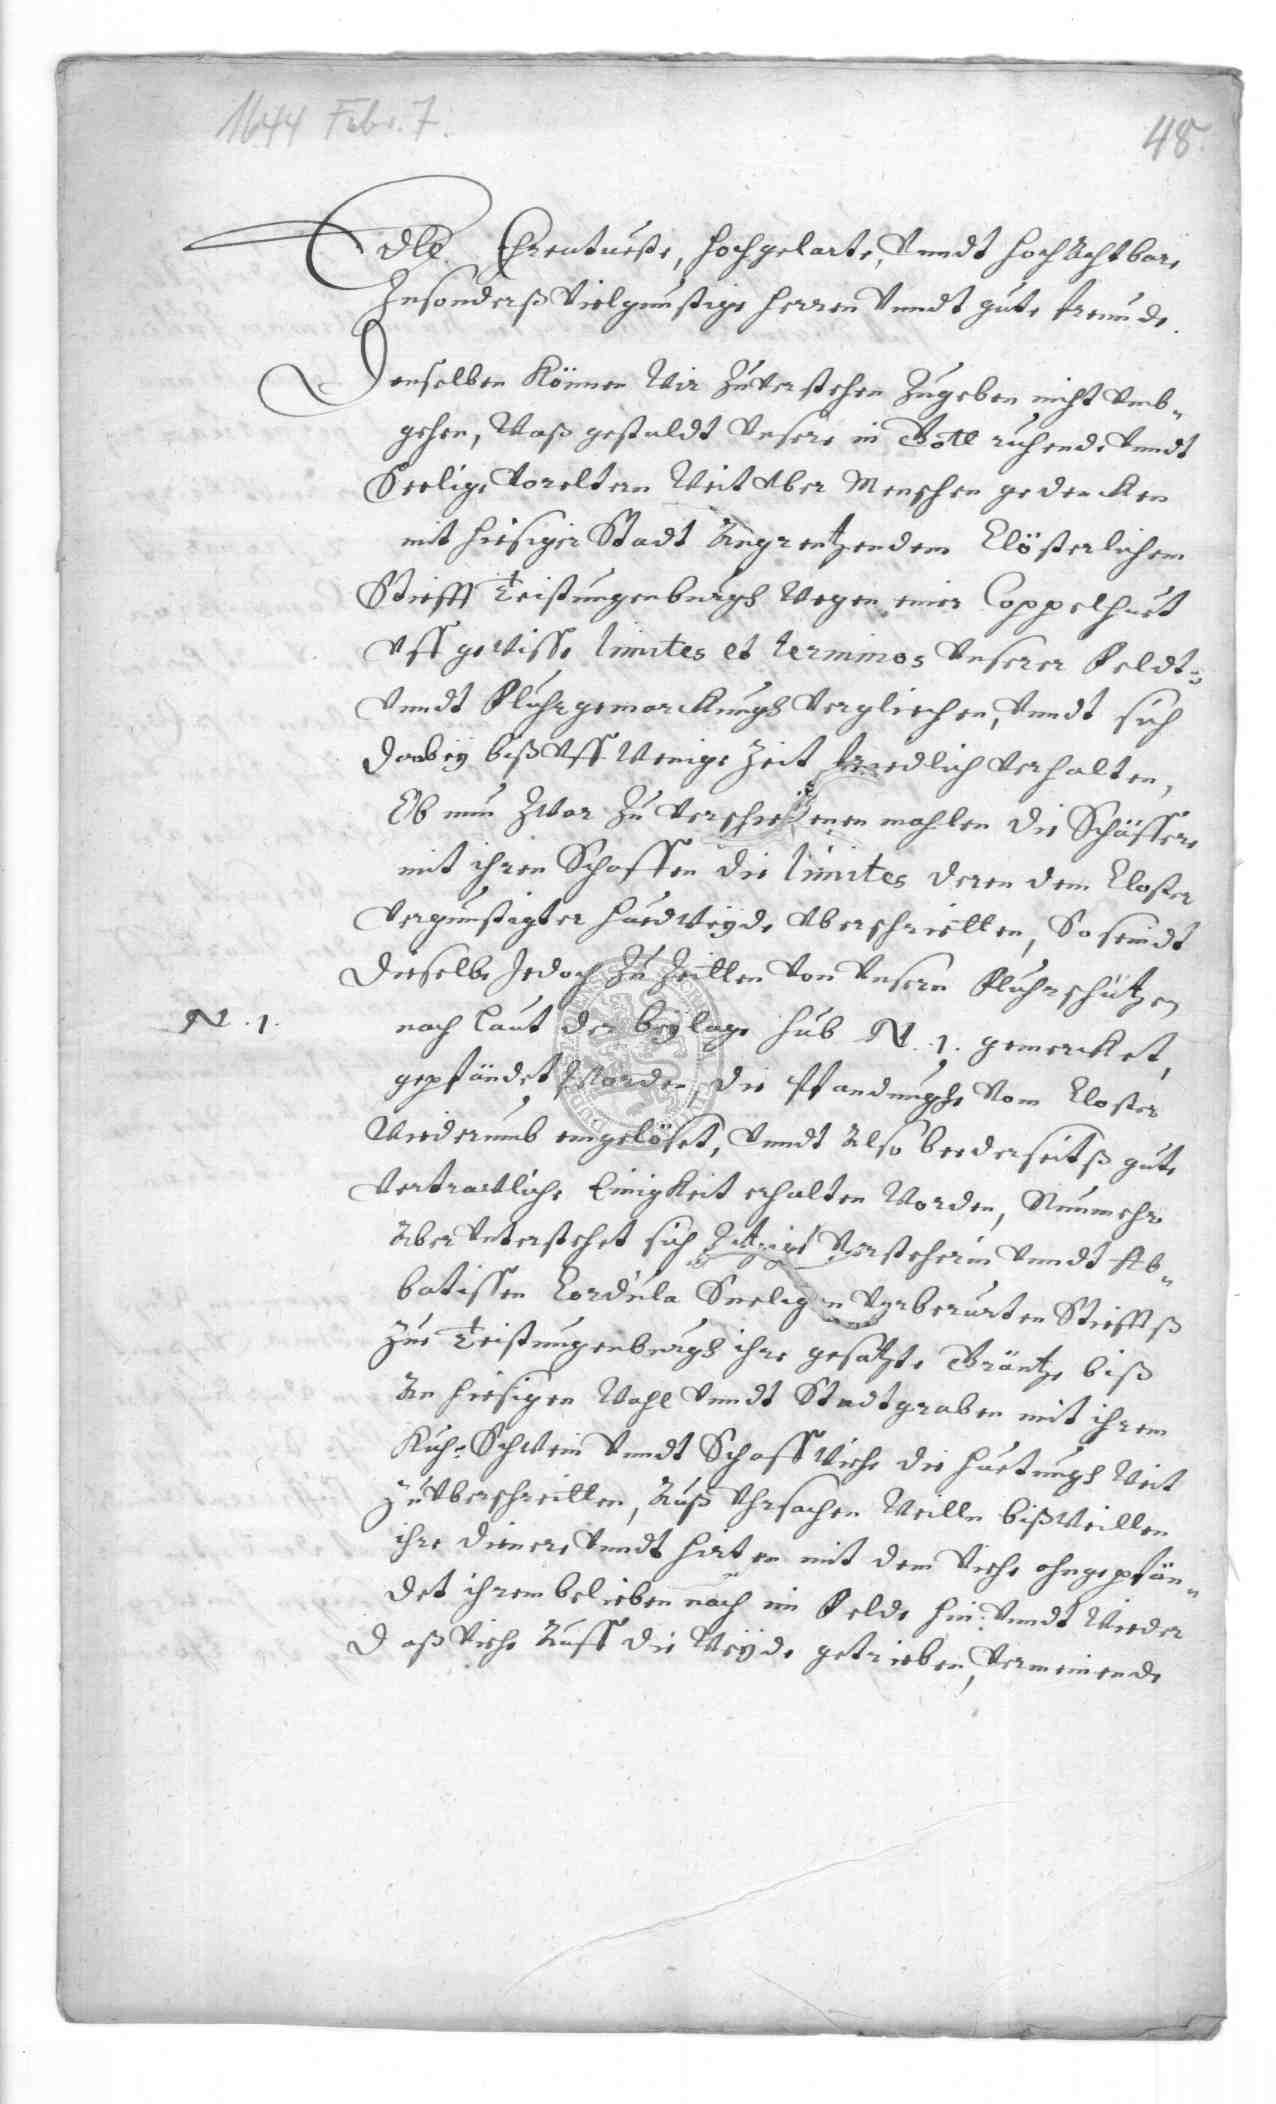 1644 Febr. 7.
48.
Edle Ehrentueste, hochgelarte, Vnndt hochachtbare
Insonderß Vielgunstige Herren Vnndt gute freunde.
Denselben Können Wir zuVerstehen Zugeben nicht Vmb-
gehen, Waß gestaldt Vnsere in Gott ruhende Vnndt
Seelige Voreltern Weit Vber Menschen gedencken
mit hiesiger Stadt Angrentzendem Clösterlichem
Stiefft Teistungenburgk Wegen einer Coppelhuet
Vff geWisse limites et terminos Vnserer Feldt-
Vnndt Fluhrgemarckungk Verglichen, Vnndt sich
Dabeÿ biß Vff Wenige Zeit friedlich Verhalten,
Ob nun ZWar Zu Verschiedenen mahlen die Schäffere
mit ihren Schaffen die limites deren dem Closter
Vergunstigter HuedWeÿde Vberschrietten, So seindt
Dieselbe Jedoch Zu Zeitten Von Vnsern Fluhrschützen
N. 1.
nach laut der beÿlage sub N. 1. gemercket,
gepfändet Worden, die Pfandunghe Vom Closter
Wiederumb eingelöset, Vnndt Also beederseitß gute
Vertrawliche Einigkeit erhalten Worden, Nunmehr
Aber Vnterstehet sich Jetzige Vorsteherin Vnndt Ab-
batissen Cordula Seeligen Vorberurten Stieffts
Zur Teistungenburgk ihre gesatzte Gräntze biß
An hiesigen Wahl Vnndt Stadtgraben mit ihrem
Kuh- SchWein Vnndt SchaffViehe die Huetungk Weit
ZuVberschreitten, Auß Vhrsachen Weilln bißWeillen
ihre dienere Vnndt Hirten mit dem Viehe ohngepfän-
det ihrem belieben nach im Felde hin- Vnndt Wieder
Daß Viehe Auff die Weÿde getrieben, Vermeinende